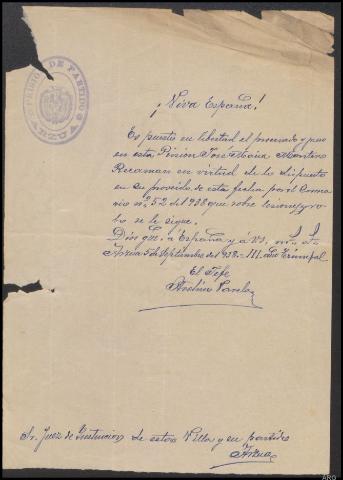 PRISION DE PARTIDO
ARZUA
¡Viva España!
Es puesto en libertad el procesado y preso
en esta Prisión José María Martínez
Recaman en virtud de lo dispuesto
en su proveído de esta fecha por el Suma
rio nº 52 del 938 que sobre lesiones y ro
bo se le sigue.
Dios gue. a España y á VS. ms. as.
Arzua 5 de Septiembre del 938.- III. Año Triunfal
El Jefe
Avelino Varela
Sr. Juez de Instruccion de esta Villa y su partido
Arzua
ARG